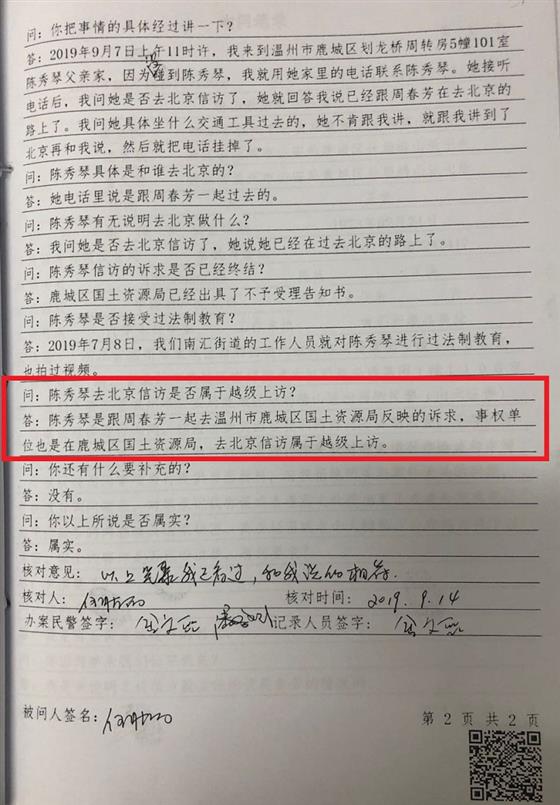 问：你把事情的具体经过讲一下？
答：2019年9月7日上午11时许，我来到温州市鹿城区划龙桥周转房5幢101室
陈秀琴父亲家，因为碰到陈秀琴，我就用她家里的电话联系陈秀琴。她接听
电话后，我问她是否去北京信访了，她就回答我说已经跟周春芳在去北京的
路上了。我问她具体坐什么交通工具过去的，她不肯跟我讲，就跟我讲到了
北京再和我说，然后就把电话挂掉了。
问：陈秀琴具体是和谁去北京的？
答：她电话里说是跟周春芳一起过去的。
问：陈秀琴有无说明去北京做什么？
答：我问她是否去北京信访了，她说她已经在过去北京的路上了。
问：陈秀琴信访的诉求是否已经终结？
答：鹿城区国土资源局已经出具了不予受理告知书。
问：陈秀琴是否接受过法制教育？
答：2019年7月8日，我们南汇街道的工作人员就对陈秀琴进行过法制教育，
也拍过视频。
问：陈秀琴去北京信访是否属于越级上访？
答：陈秀琴是跟周春芳一起去温州市鹿城区国土资源局反映的诉求，事权单
位也是在鹿城区国土资源局，去北京信访属于越级上访。
问：你还有什么要补充的？
答：没有。
问：你以上所说是否属实？
答：属实。
核对意见：以上笔录我已看过，和我说的相符.
核对人： 核对时间：2019.9.14
办案民警签字： 记录人员签字：
被问人签名： 第 2 页 共 2 页